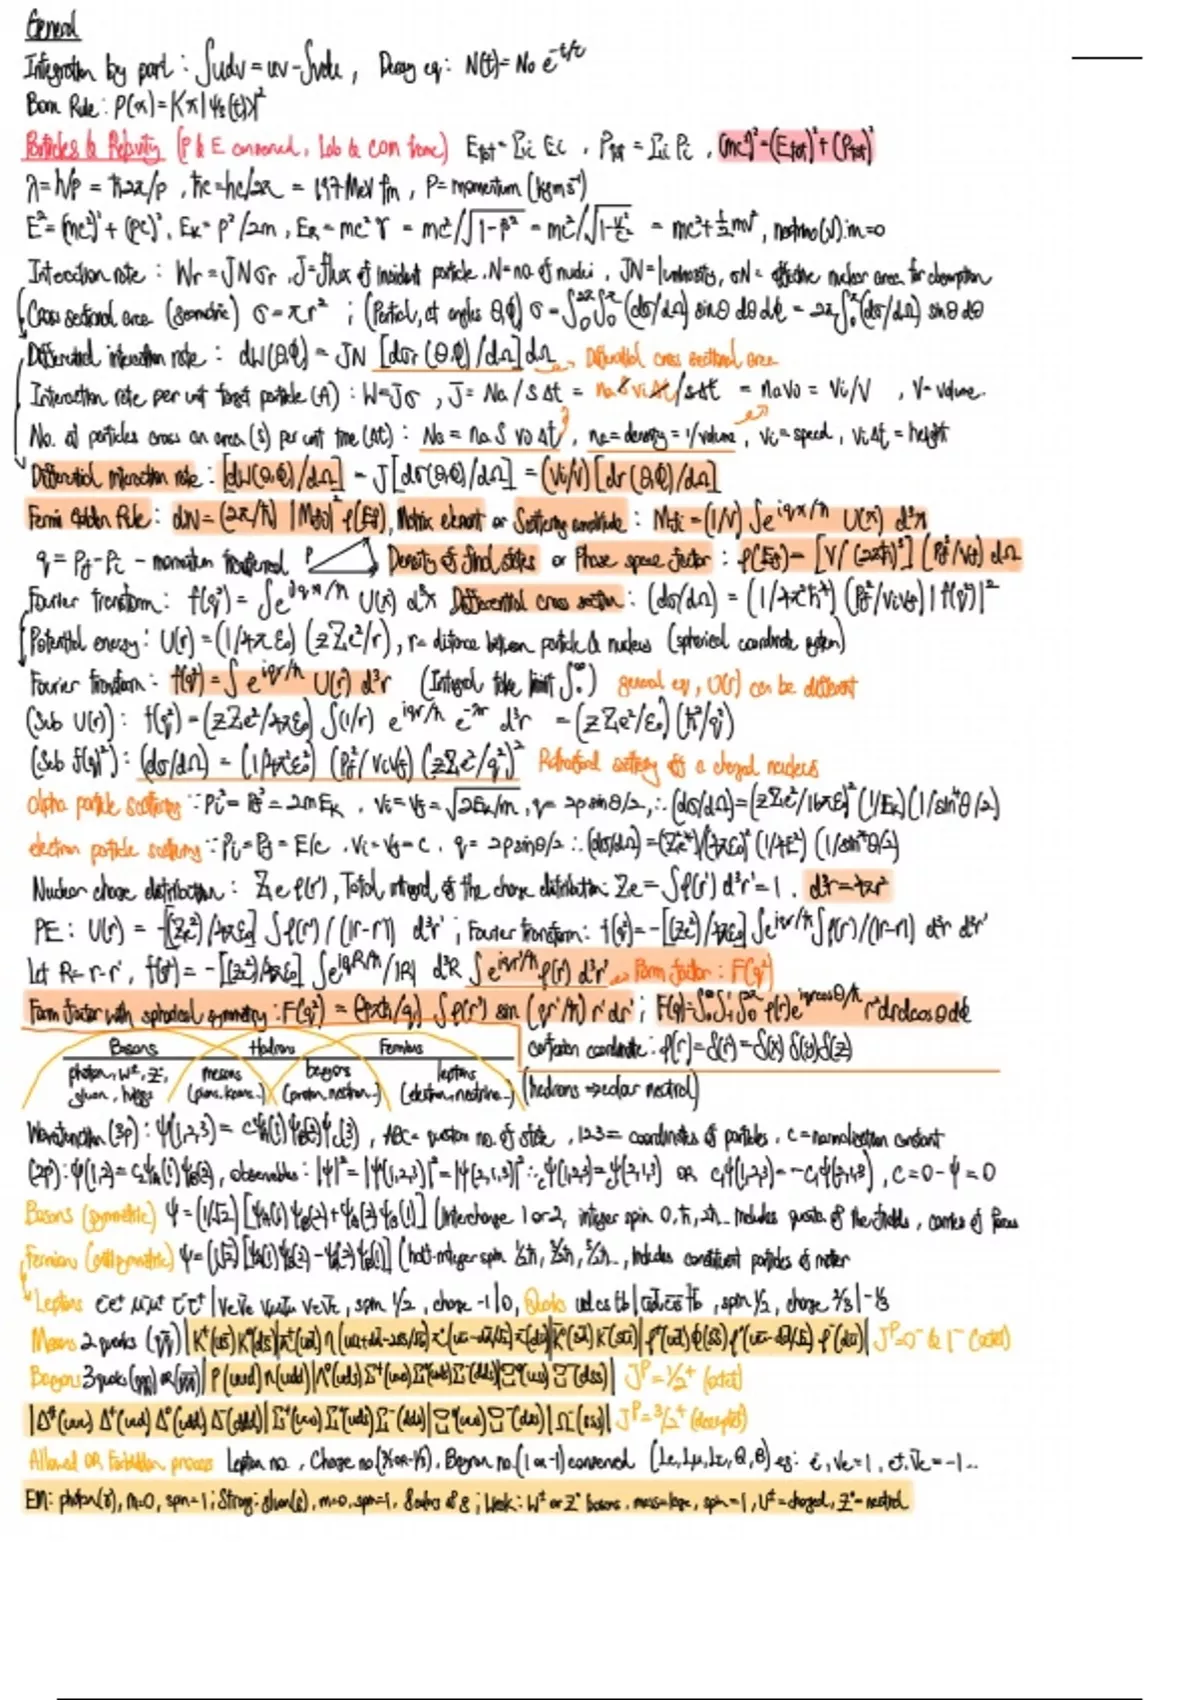 General
Integration by part : ∫udv = uv - ∫vdu , Decay eq : N(t) = N₀ e^(-t/τ)
Born Rule : P(x) = |<x|ψs(t)>|²
Particles & Relativity (P & E conserved, Lab & COM frame) Etot = Σi Ei , Ptot = Σi Pi , (mc²)² = (Etot)² + (Ptot)²
λ = h/p = ħ2π/p , ħc = hc/2π = 197 MeV fm , P = momentum (kgms⁻¹)
E² = (mc²)² + (pc)² , EK = p²/2m , ER = mc²γ = mc²/√(1-β²) = mc²/√(1-v²/c²) = mc² + ½mv² , neutrino (ν) : m=0
Interaction rate : Wr = JNσr , J = flux of incident particle , N = no. of nuclei , JN = luminosity , σN = effective nuclear area for absorption
Cross sectional area (geometric) σ = πr² ; (Partial, at angles θ,φ) σ = ∫₀^2π ∫₀^π (dσ/dΩ) sinθ dθ dφ = 2π∫₀^π (dσ/dΩ) sinθ dθ
Differential interaction rate : dW(θ,φ) = JN [dσr (θ,φ)/dΩ] dΩ → Differential cross sectional area
Interaction rate per unit target particle (A) : W = Jσ , J = Na / S Δt = na S vi Δt / S Δt = na v0 = vi/V , V = volume.
No. of particles cross an area (s) per unit time (Δt) : Na = na S v0 Δt , na = density = 1/volume , vi = speed , viΔt = height
Differential interaction rate : [dW(θ,φ)/dΩ] = J [dσ(θ,φ)/dΩ] = (vi/V) [dσ(θ,φ)/dΩ]
Fermi Golden Rule : dW = (2π/ħ) |Mfi|² ρ(Ef) , Matrix element or Scattering amplitude : Mfi = (1/V) ∫e^(iqx/ħ) U(x) d³x
q = Pf - Pi - momentum transferred Density of final states or Phase space factor : ρ(Ef) = [V/(2πħ)³] (Pf²/vf) dΩ
Fourier transform : f(q²) = ∫e^(iqx/ħ) U(x) d³x Differential cross section : (dσ/dΩ) = (1/4π²ħ⁴) (Pf²/vivf) |f(q²)|²
Potential energy : U(r) = (1/4πε₀) (zZe²/r) , r = distance between particle & nucleus (spherical coordinate system)
Fourier transform : f(q²) = ∫e^(iqr/ħ) U(r) d³r (Integral take limit ∫₀^∞) general eq , U(r) can be different
(Sub U(r)) : f(q²) = (zZe²/4πε₀) ∫(1/r) e^(iqr/ħ) e^(-λr) d³r = (zZe²/ε₀) (ħ²/q²)
(Sub f(q)²) : (dσ/dΩ) = (1/4π²ε₀²) (Pf²/vivf) (zZe²/q²)² Rutherford scattering off a charged nucleus
alpha particle scattering ∵ Pi² = Pf² = 2mEK , vi = vf = √(2EK/m) , q = 2p sinθ/2 , ∴ (dσ/dΩ) = (zZe²/16πε₀)² (1/EK) (1/sin⁴θ/2)
electron particle scattering ∵ Pi = Pf = E/c , vi = vf = c , q = 2p sinθ/2 ∴ (dσ/dΩ) = (Z²e⁴)/(4πε₀)² (1/4E²) (1/sin⁴θ/2)
Nuclear charge distribution : Zeρ(r') , Total integral of the charge distribution Ze = ∫ρ(r') d³r' = 1 . d³r = 4πr²
PE : U(r) = -[(Ze²)/4πε₀] ∫ρ(r') / (|r-r'|) d³r' ; Fourier transform : f(q²) = -[(Ze²)/4πε₀] ∫e^(iqr/ħ) ∫ρ(r') / (|r-r'|) d³r d³r'
Let R = r-r' , f(q²) = -[(Ze²)/4πε₀] ∫e^(iqR/ħ) /|R| d³R ∫e^(iqr'/ħ) ρ(r') d³r' → Form factor : F(q²)
Form factor with spherical symmetry : F(q²) = (4πħ/q) ∫ρ(r') sin (qr'/ħ) r'dr' ; F(q) = ∫₀^∞ ∫₋₁^1 ∫₀^2π ρ(r) e^(iqrcosθ/ħ) r²drdcosθdφ
Bosons Hadrons Fermions cartesian coordinate : ρ(r) = δ(r) = δ(x) δ(y) δ(z)
photon, W±, Z⁰, mesons baryons leptons
gluon, higgs (pions, kaons..) (proton, neutron..) (electron, neutrino..) (hadrons ⇒ colour neutral)
Wavefunction (3p) : ψ(1,2,3) = cψA(1)ψB(2)ψC(3) , ABC = quantum no. of state , 123 = coordinates of particles , c = normalisation constant
(2p) : ψ(1,2) = cψA(1)ψB(2) , observables : |ψ|² = |ψ(1,2,3)|² = |ψ(2,1,3)|² ∴ ψ(1,2,3) = ψ(2,1,3) OR c,ψ(1,2,3) = -c,ψ(2,1,3) , c = 0 - ψ = 0
Bosons (symmetric) ψ = (1/√2) [ψA(1)ψB(2) + ψA(2)ψB(1)] (Interchange 1 or 2, integer spin 0, ħ, 2ħ.. Includes quanta of the fields , carries of forces
Fermions (antisymmetric) ψ = (1/√2) [ψA(1)ψB(2) - ψA(2)ψB(1)] (half-integer spin ½ħ, 3/2ħ, 5/2ħ.. , Includes constituent particles of matter
Leptons e⁻e⁺ μ⁻μ⁺ τ⁻τ⁺ | νeν̄e νμν̄μ ντν̄τ , spin 1/2 , charge -1|0 , Quarks ud cs tb | ūd̄ c̄s̄ t̄b̄ , spin ½ , charge 2/3|-1/3
Mesons 2 quarks (qq̄) J^P = 0⁻ & 1⁻ (octet)
Baryons 3 quarks (qqq) OR (q̄q̄q̄) | P (uud) n (udd) | Λ⁰(uds) Σ⁺(uus) Σ⁰(uds) Σ⁻(dds) | Ξ⁰(uss) Ξ⁻(dss) | J^P = ½⁺ (octet)
| Δ⁺⁺(uuu) Δ⁺(uud) Δ⁰(udd) Δ⁻(ddd) | Σ⁺(uus) Σ⁰(uds) Σ⁻(dds) | Ξ⁰(uss) Ξ⁻(dss) | Ω⁻(sss) | J^P = 3/2⁺ (decuplet)
Allowed OR Forbidden process Lepton no. , Charge no. (2/3 OR -1/3) , Baryon no. (1 or -1) conserved (Le, Lμ, Lτ, Q, B) eg : e⁻, νe = 1 , e⁺, ν̄e = -1 ..
EM : photon (γ), m=0, spin=1 ; Strong : gluon (g), m=0, spin=1, 8 colors of g ; Weak : W± or Z⁰ bosons , mass=large , spin=1 , W± = charged , Z⁰ = neutral